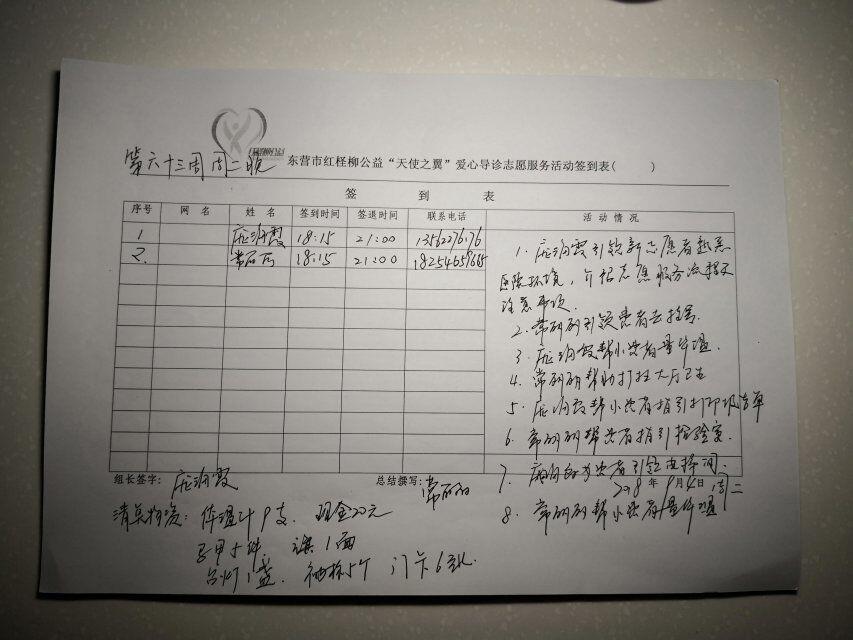 第六十三周周二晚
东营市红柽柳公益“天使之翼”爱心导诊志愿服务活动签到表( )
签 到 表
序号 网 名 姓 名 签到时间 签退时间 联系电话 活 动 情 况
1 庞润霞 18:15 21:00 13562276176
2. 常丽丽 18:15 21:00
1. 庞润霞引领新志愿者熟悉
医院环境,介绍志愿服务流程及
注意事项.
2. 常丽丽引领患者去拍片.
3. 庞润霞帮小患者量体温.
4. 常丽丽帮助打扫大厅卫生
5. 庞润霞帮小患者指引打印报清单
6. 常丽丽帮患者指引检验室.
7. 庞润霞为患者引领
2018年9月4日 周二
8. 常丽丽帮小患者量体温
组长签字: 庞润霞 总结撰写: 常丽丽
清点物资: 体温计9支. 现金20元
马甲5件. 旗1面
台灯1盏. 袖标5个 门卡6张.